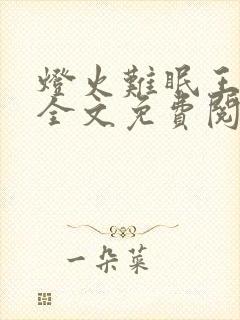 燈火難眠王
全文免費閱
一朵菜